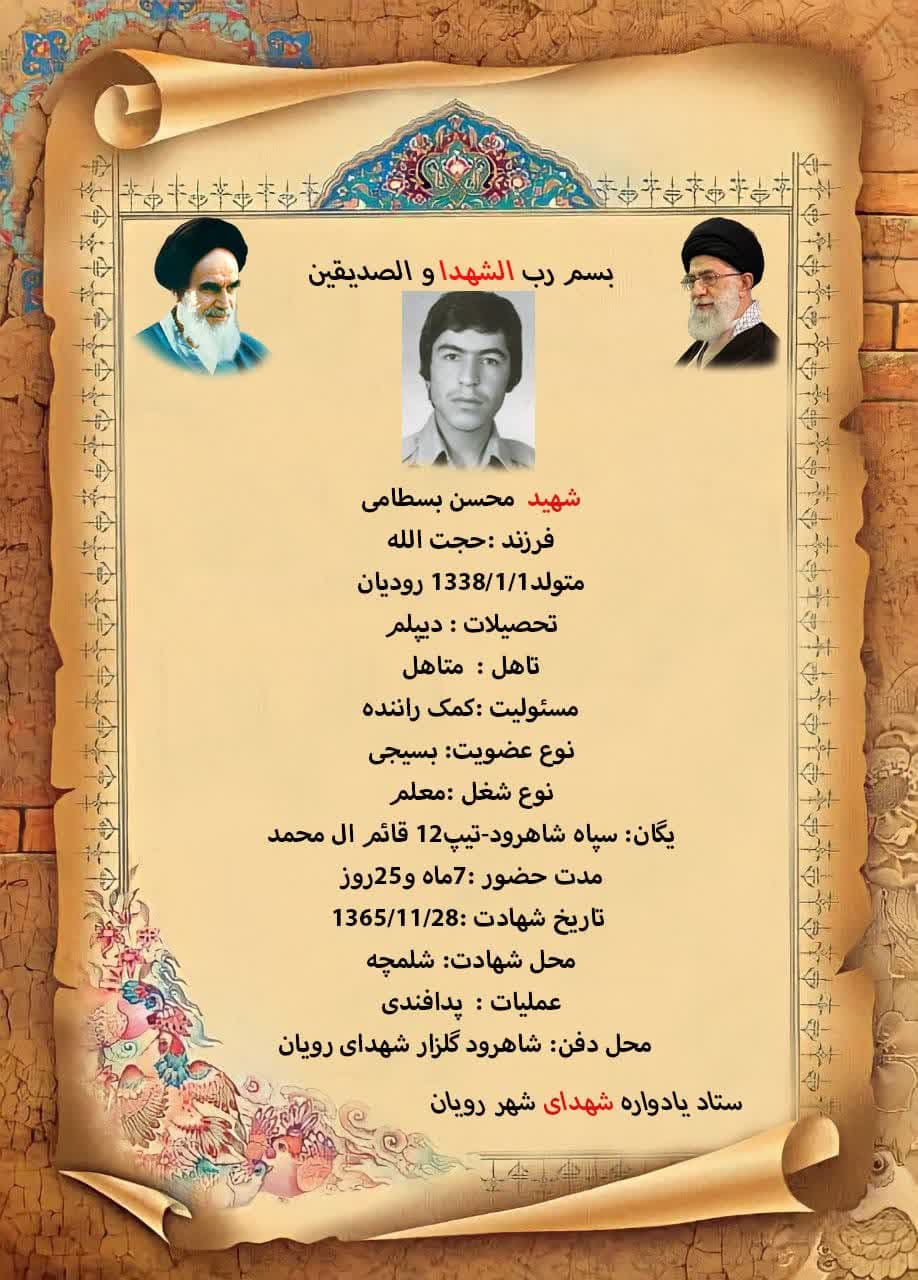 بسم رب الشهدا و الصدیقین
شهید محسن بسطامی
فرزند :حجت الله
متولد1338/1/1 رودیان
تحصیلات : دیپلم
تاهل : متاهل
مسئولیت :کمک راننده
نوع عضویت: بسیجی
نوع شغل :معلم
یگان: سپاه شاهرود-تیپ12 قائم ال محمد
مدت حضور :7ماه و25روز
تاریخ شهادت :1365/11/28
محل شهادت: شلمچه
عملیات : پدافندی
محل دفن: شاهرود گلزار شهدای رویان
ستاد یادواره شهدای شهر رویان